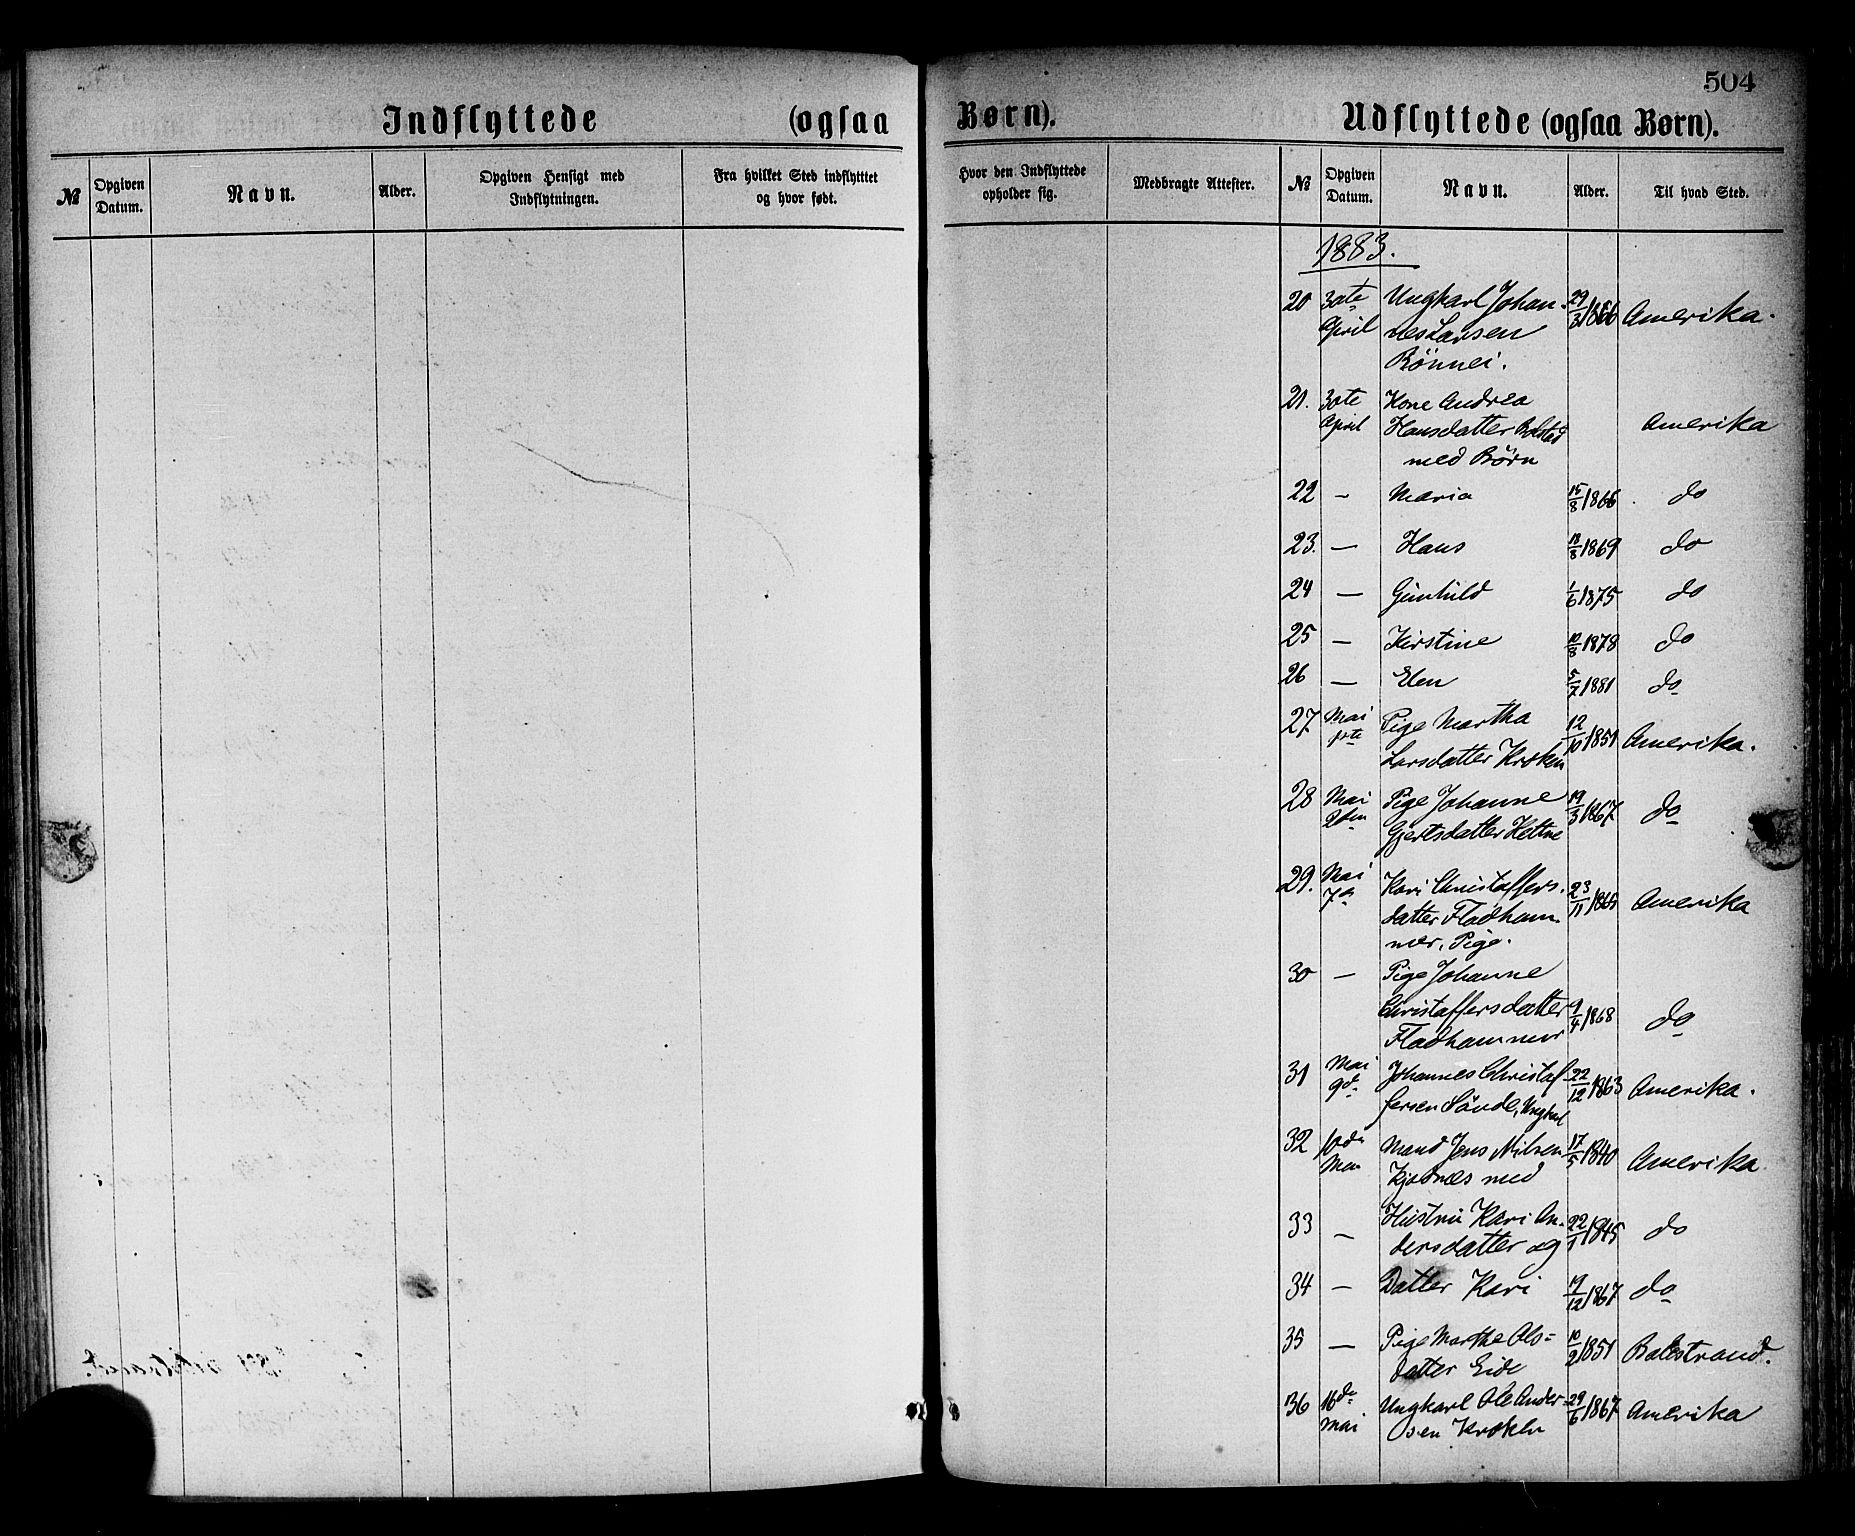 504
Indflyttede (ogsaa Børn).
Udflyttede (ogsaa Børn).
№ Opgiven Datum. Navn. Alder. Opgiven Hensigt med Indflytningen. Fra hvilket Sted indflytttet og hvor født. Hvor den Indflyttede opholder sig. Medbragte Attester. № Opgiven Datum. Navn. Alder. Til hvad Sted.
1883.
20 30te Ungkarl Johan- 29/3 1866 Amerika.
April nes Larsen
Rönnei.
21. 30te Kone Andrea
April Hansdatter Bolstad Amerika
med Börn
22 - Maria 15/8 1866 do
23. — Hans 18/8 1869 do
24 — Gunhild 1/6 1875 do
25 — Kirstine 10/8 1878 do
26 — Elen 5/7 1881 do
27 Mai Pige Martha 12/10 1851 Amerika.
1ste Larsdatter Kroken
28 Mai Pige Johanne 19/3 1867 do
2den Gjertsdatter Hettne
29. Mai Kari Christaffers- 23/11 1865 Amerika
7de datter Fladham-
mer, Pige.
30 — Pige Johanne
Christaffersdatter 9/4 1868 do
Fladhammer
31 Mai Johannes Christaf- 22/12 1863 Amerika.
9de fersen Sönde, Ungkarl
32 10de Mand Jens Nilsen 17/5 1840 Amerika
Mai Kjosnæs med
33 — Hustru Kari An- 22/1 1845 do
dersdatter og
34 — Datter Kari 19/12 1867 do
35 — Pige Marthe Ols= 10/2 1851 Balestrand.
datter Eide
36 16de Ungkarl Ole Ander- 29/6 1867 Amerika
Mai sen Kroken